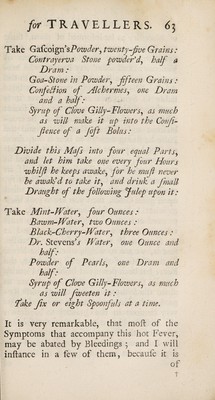 for TRAVELLERS. 63
Take Gaſcoign's Powder, twenty-five Grains:
Contrayerva Stone powder'd, half a
Dram:
Goa-Stone in Powder, fifteen Grains:
Confection of Alchermes, one Dram
and a half:
Syrup of Clove Gilly-Flowers, as much
as will make it up into the Conſi-
ſtence of a ſoft Bolus:
Divide this Maſs into four equal Parts,
and let him take one every four Hours
whilſt he keeps awake, for he muſt never
be awak'd to take it, and drink a ſmall
Draught of the following Julep upon it:
Take Mint-Water, four Ounces:
Bawm-Water, two Ounces:
Black-Cherry-Water, three Ounces:
Dr. Stevens's Water, one Ounce and
half:
Powder of Pearls, one Dram and
half:
Syrup of Clove Gilly-Flowers, as much
as will ſweeten it:
Take ſix or eight Spoonfuls at a time.
It is very remarkable, that moſt of the
Symptoms that accompany this hot Fever,
may be abated by Bleedings; and I will
inſtance in a few of them, becauſe it is
of